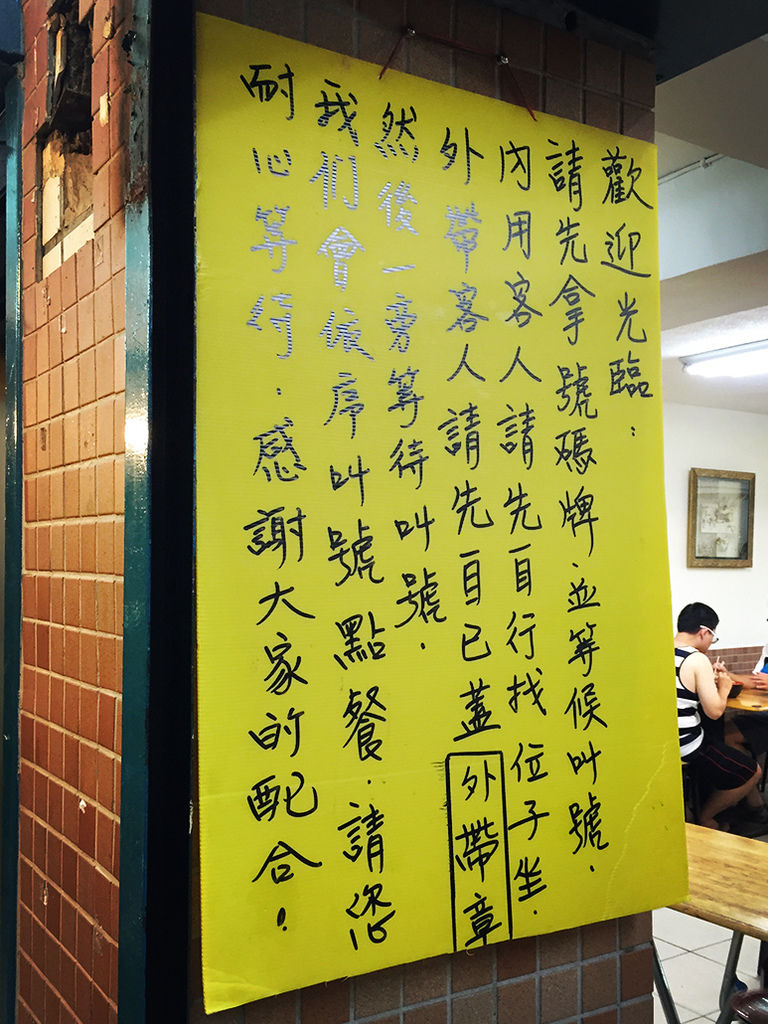 歡迎光臨：
請先拿號碼牌並等候叫號．
內用客人請先自行找位子坐．
外帶客人請先自己蓋外帶章
然後一旁等待叫號．
我們會依序叫號點餐．請您
耐心等待．感謝大家的配合！